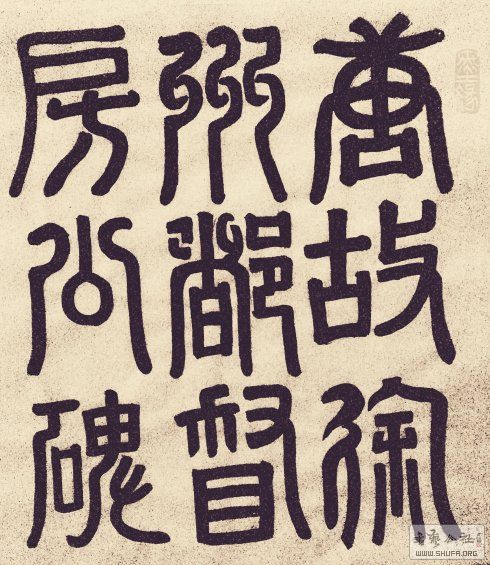 唐故徐
州都督
房公碑
WWW.SHUFA.ORG